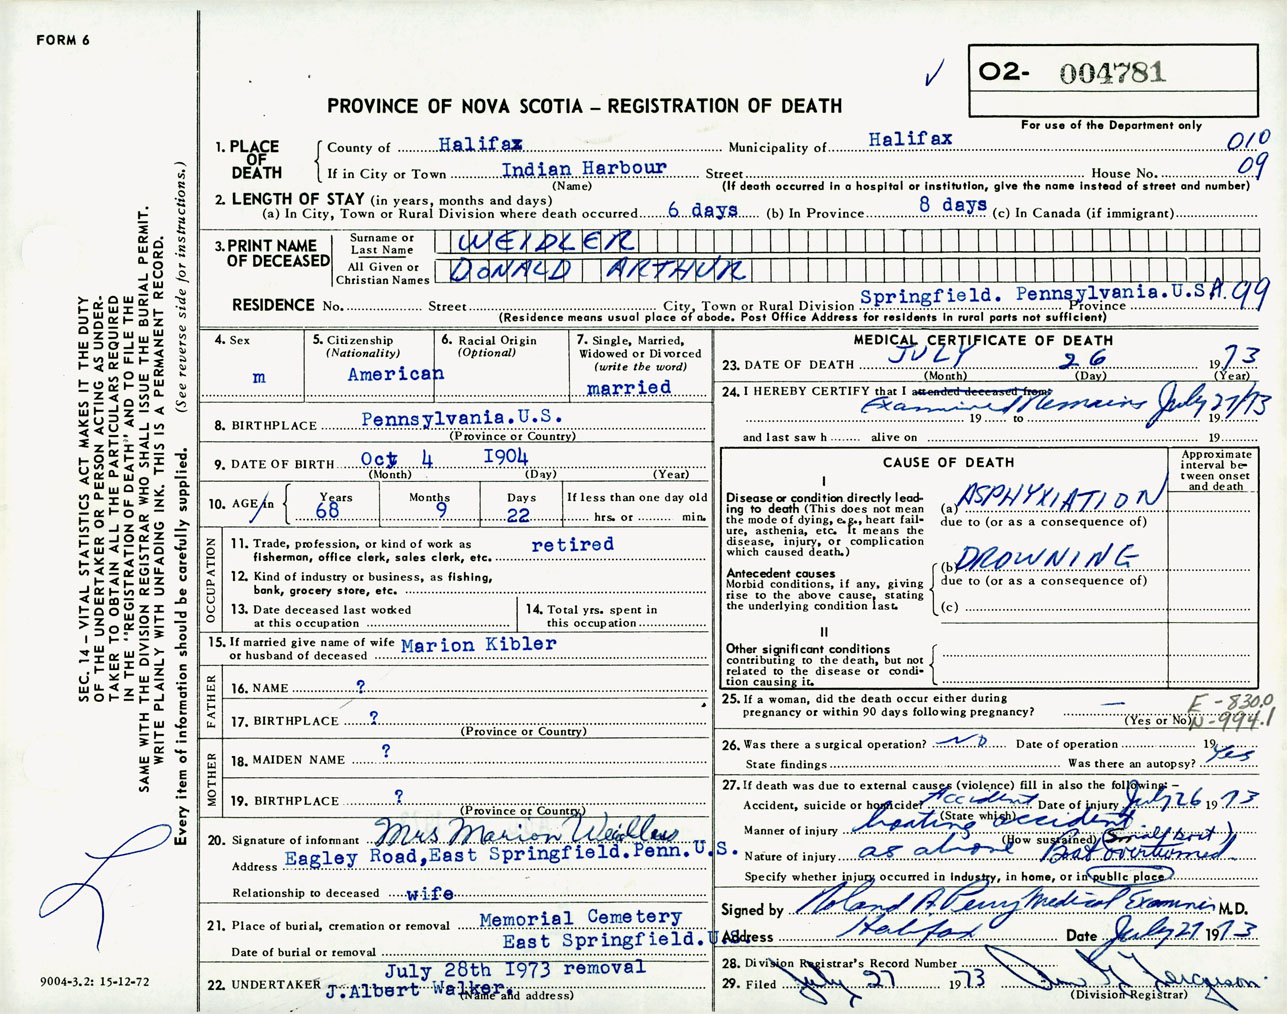 FORM 6
O2- 004781
PROVINCE OF NOVA SCOTIA – REGISTRATION OF DEATH
For use of the Department only
1. PLACE OF DEATH
County of Halifax Municipality of Halifax 010
If in City or Town Indian Harbour Street House No. 09
(Name) (If death occurred in a hospital or institution, give the name instead of street and number)
2. LENGTH OF STAY (in years, months and days)
(a) In City, Town or Rural Division where death occurred 6 days (b) In Province 8 days (c) In Canada (if immigrant)
3. PRINT NAME OF DECEASED
Surname or Last Name WEIDLER
All Given or Christian Names DONALD ARTHUR
RESIDENCE No. Street City, Town or Rural Division Springfield. Pennsylvania.U.S.A. Province 99
(Residence means usual place of abode. Post Office Address for residents in rural parts not sufficient)
4. Sex
m
5. Citizenship
(Nationality)
American
6. Racial Origin
(Optional)
7. Single, Married,
Widowed or Divorced
(write the word)
married
8. BIRTHPLACE Pennsylvania.U.S.
(Province or Country)
9. DATE OF BIRTH Oct 4 1904
(Month) (Day) (Year)
10. AGE in
Years 68 Months 9 Days 22
If less than one day old
hrs. or min.
OCCUPATION
11. Trade, profession, or kind of work as
fisherman, office clerk, sales clerk, etc. retired
12. Kind of industry or business, as fishing,
bank, grocery store, etc.
13. Date deceased last worked
at this occupation
14. Total yrs. spent in
this occupation
15. If married give name of wife
or husband of deceased Marion Kibler
FATHER
16. NAME ?
17. BIRTHPLACE ?
(Province or Country)
MOTHER
18. MAIDEN NAME ?
19. BIRTHPLACE ?
(Province or Country)
20. Signature of informant Mrs Marion Weidler
Address Eagley Road,East Springfield.Penn.U.S.
Relationship to deceased wife
21. Place of burial, cremation or removal Memorial Cemetery
East Springfield.U.S.
Date of burial or removal
July 28th 1973 removal
22. UNDERTAKER J.Albert Walker.
(Name and address)
MEDICAL CERTIFICATE OF DEATH
23. DATE OF DEATH JULY 26 1973
(Month) (Day) (Year)
24. I HEREBY CERTIFY that I attended deceased from:
Examined Remains July 27/73
19 to 19
and last saw h alive on 19
CAUSE OF DEATH
Approximate
interval be-
tween onset
and death
I
Disease or condition directly lead-
ing to death (This does not mean
the mode of dying, e.g., heart fail-
ure, asthenia, etc. It means the
disease, injury, or complication
which caused death.)
(a) ASPHYXIATION
due to (or as a consequence of)
Antecedent causes
Morbid conditions, if any, giving
rise to the above cause, stating
the underlying condition last.
(b) DROWNING
due to (or as a consequence of)
(c)
II
Other significant conditions
contributing to the death, but not
related to the disease or condi-
tion causing it.
25. If a woman, did the death occur either during
pregnancy or within 90 days following pregnancy? —
(Yes or No)
E-830.0
N-994.1
26. Was there a surgical operation? NO Date of operation 19
State findings Was there an autopsy? Yes
27. If death was due to external causes (violence) fill in also the following: –
Accident, suicide or homicide? Accident Date of injury July 26 1973
(State which)
Manner of injury boating accident
(How sustained) (Small boat)
Nature of injury as above Boat overturned
Specify whether injury occurred in industry, in home, or in public place
Signed by Roland A. Perry Medical Examiner M.D.
Address Halifax Date July 27 1973
28. Division Registrar's Record Number
29. Filed July 27 1973 Ferguson
(Division Registrar)
SEC. 14 – VITAL STATISTICS ACT MAKES IT THE DUTY
OF THE UNDERTAKER OR PERSON ACTING AS UNDER-
TAKER TO OBTAIN ALL THE PARTICULARS REQUIRED
IN THE "REGISTRATION OF DEATH" AND TO FILE THE
SAME WITH THE DIVISION REGISTRAR WHO SHALL ISSUE THE BURIAL PERMIT.
WRITE PLAINLY WITH UNFADING INK. THIS IS A PERMANENT RECORD.
Every item of information should be carefully supplied. (See reverse side for instructions.)
9004-3.2: 15-12-72